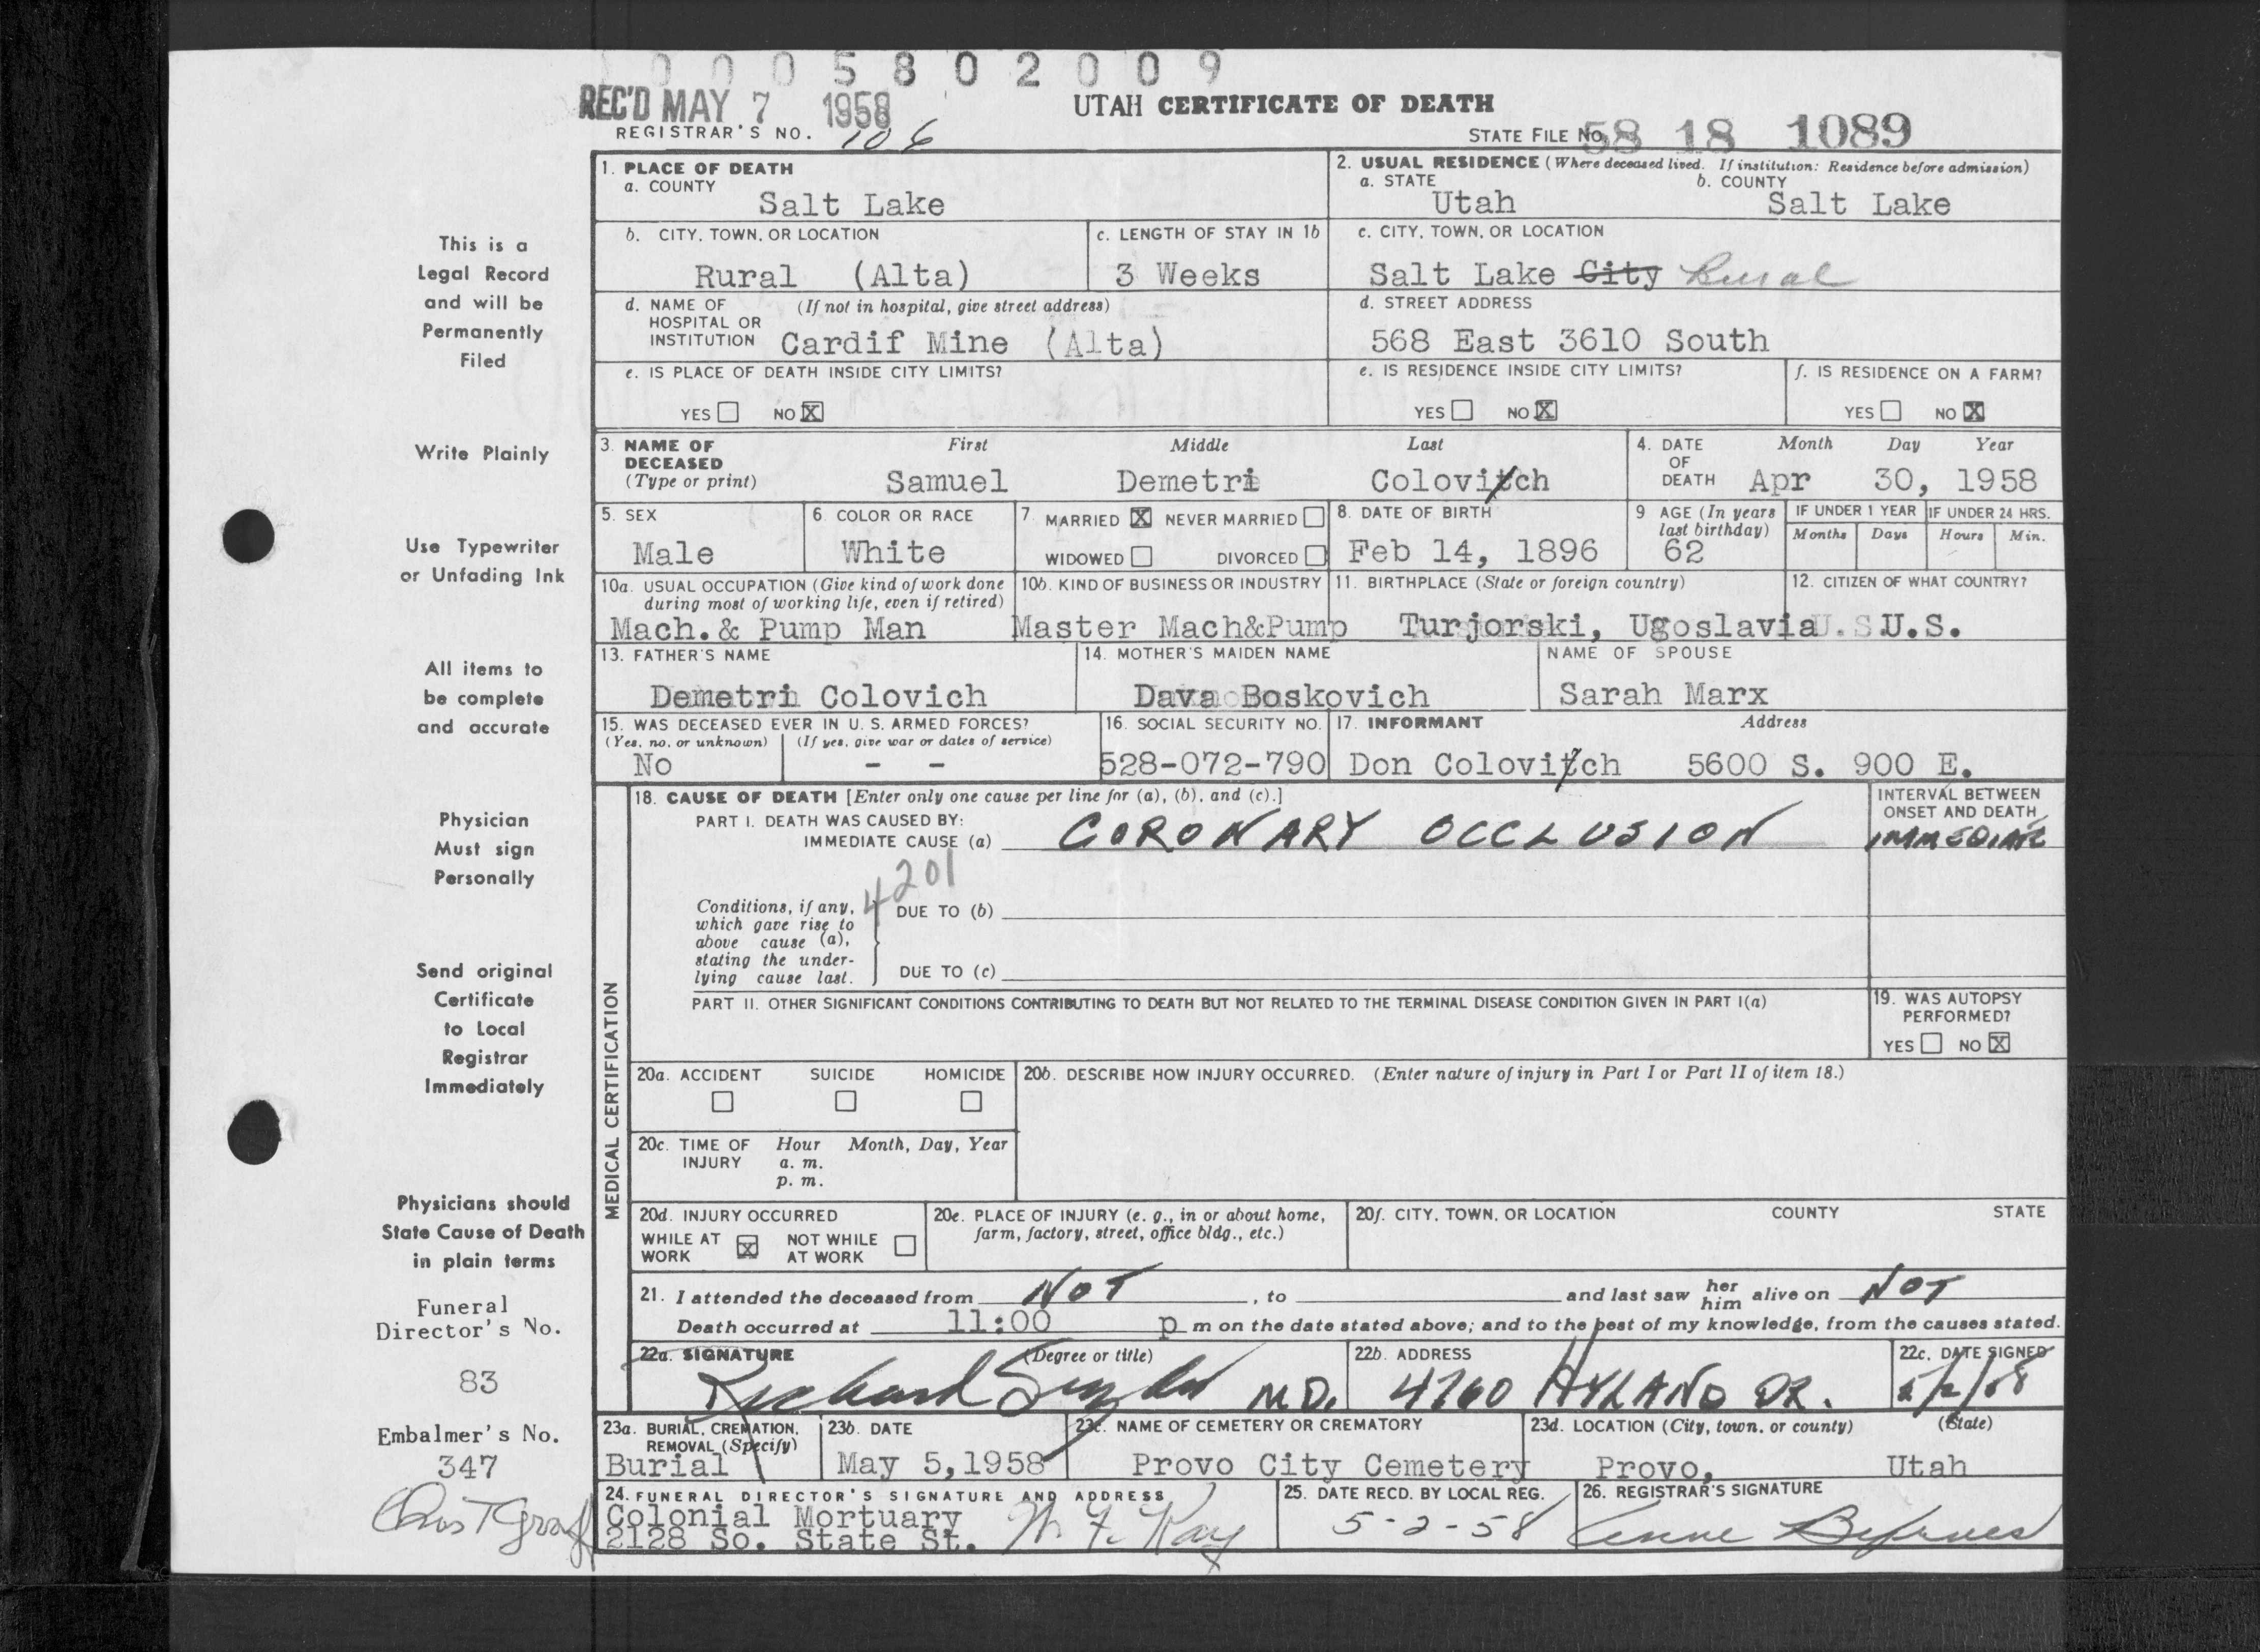 0 0 0 5 8 0 2 0 0 9
REC'D MAY 7 1958
UTAH CERTIFICATE OF DEATH
REGISTRAR'S NO. 106
STATE FILE No. 58 18 1089
1. PLACE OF DEATH
a. COUNTY
Salt Lake
2. USUAL RESIDENCE (Where deceased lived. If institution: Residence before admission)
a. STATE b. COUNTY
Utah Salt Lake
b. CITY, TOWN, OR LOCATION
Rural (Alta)
c. LENGTH OF STAY IN 1b
3 Weeks
c. CITY, TOWN, OR LOCATION
Salt Lake City Rural
d. NAME OF (If not in hospital, give street address)
HOSPITAL OR
INSTITUTION Cardif Mine (Alta)
d. STREET ADDRESS
568 East 3610 South
e. IS PLACE OF DEATH INSIDE CITY LIMITS?
YES NO X
e. IS RESIDENCE INSIDE CITY LIMITS?
YES NO X
f. IS RESIDENCE ON A FARM?
YES NO X
3. NAME OF First Middle Last
DECEASED
(Type or print) Samuel Demetri Colovitch
4. DATE Month Day Year
OF
DEATH Apr 30, 1958
5. SEX
Male
6. COLOR OR RACE
White
7. MARRIED X NEVER MARRIED
WIDOWED DIVORCED
8. DATE OF BIRTH
Feb 14, 1896
9 AGE (In years
last birthday)
62
IF UNDER 1 YEAR
Months Days
IF UNDER 24 HRS.
Hours Min.
10a. USUAL OCCUPATION (Give kind of work done
during most of working life, even if retired)
Mach.& Pump Man
10b. KIND OF BUSINESS OR INDUSTRY
Master Mach&Pump
11. BIRTHPLACE (State or foreign country)
Turjorski, Ugoslavia
12. CITIZEN OF WHAT COUNTRY?
U.S.
13. FATHER'S NAME
Demetri Colovich
14. MOTHER'S MAIDEN NAME
Dava Boskovich
NAME OF SPOUSE
Sarah Marx
15. WAS DECEASED EVER IN U. S. ARMED FORCES?
(Yes, no, or unknown) (If yes, give war or dates of service)
No - -
16. SOCIAL SECURITY NO.
528-072-790
17. INFORMANT Address
Don Colovitch 5600 S. 900 E.
MEDICAL CERTIFICATION
18. CAUSE OF DEATH [Enter only one cause per line for (a), (b), and (c).]
PART I. DEATH WAS CAUSED BY:
IMMEDIATE CAUSE (a) CORONARY OCCLUSION
INTERVAL BETWEEN
ONSET AND DEATH
IMMEDIATE
4201
Conditions, if any,
which gave rise to
above cause (a),
stating the under-
lying cause last.
DUE TO (b)
DUE TO (c)
PART II. OTHER SIGNIFICANT CONDITIONS CONTRIBUTING TO DEATH BUT NOT RELATED TO THE TERMINAL DISEASE CONDITION GIVEN IN PART I(a)
19. WAS AUTOPSY
PERFORMED?
YES NO X
20a. ACCIDENT SUICIDE HOMICIDE
20b. DESCRIBE HOW INJURY OCCURRED. (Enter nature of injury in Part I or Part II of item 18.)
20c. TIME OF Hour Month, Day, Year
INJURY a. m.
p. m.
20d. INJURY OCCURRED
WHILE AT X NOT WHILE
WORK AT WORK
20e. PLACE OF INJURY (e. g., in or about home,
farm, factory, street, office bldg., etc.)
20f. CITY, TOWN, OR LOCATION COUNTY STATE
21. I attended the deceased from NOT , to and last saw her him alive on NOT
Death occurred at 11:00 p m on the date stated above; and to the best of my knowledge, from the causes stated.
22a. SIGNATURE (Degree or title)
Richard M.D.
22b. ADDRESS
4760 HYLAND DR.
22c. DATE SIGNED
5/2/58
23a. BURIAL, CREMATION,
REMOVAL (Specify)
Burial
23b. DATE
May 5,1958
23c. NAME OF CEMETERY OR CREMATORY
Provo City Cemetery
23d. LOCATION (City, town, or county) (State)
Provo, Utah
24. FUNERAL DIRECTOR'S SIGNATURE AND ADDRESS
Colonial Mortuary
2128 So. State St. W. F. Kay
25. DATE RECD. BY LOCAL REG.
5-2-58
26. REGISTRAR'S SIGNATURE
Anne
This is a
Legal Record
and will be
Permanently
Filed
Write Plainly
Use Typewriter
or Unfading Ink
All items to
be complete
and accurate
Physician
Must sign
Personally
Send original
Certificate
to Local
Registrar
Immediately
Physicians should
State Cause of Death
in plain terms
Funeral
Director's No.
83
Embalmer's No.
347
Chris T Graff